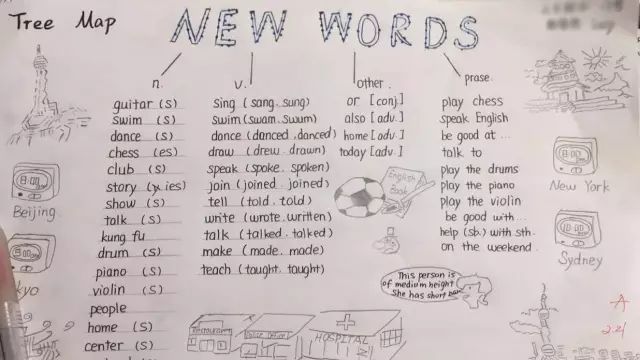 Tree Map
NEW WORDS
n.
guitar (s)
swim (s)
dance (s)
chess (es)
club (s)
story (y. ies)
show (s)
talk (s)
kung fu
drum (s)
piano (s)
violin (s)
people
home (s)
center (s)
v.
sing (sang. sung)
swim (swam. swum)
dance (danced. danced)
draw (drew. drawn)
speak (spoke. spoken)
join (joined. joined)
tell (told. told)
write (wrote. written)
talk (talked. talked)
make (made. made)
teach (taught. taught)
other.
or [conj.]
also [adv.]
home [adv.]
today [adv.]
prase.
play chess
speak English
be good at ...
talk to
play the drums
play the piano
play the violin
be good with...
help (sb.) with sth.
on the weekend.
8:00
Beijing
English
Book
New York
10:00
Sydney
This person is
of medium height
She has short
Police Office
HOSPITAL
A